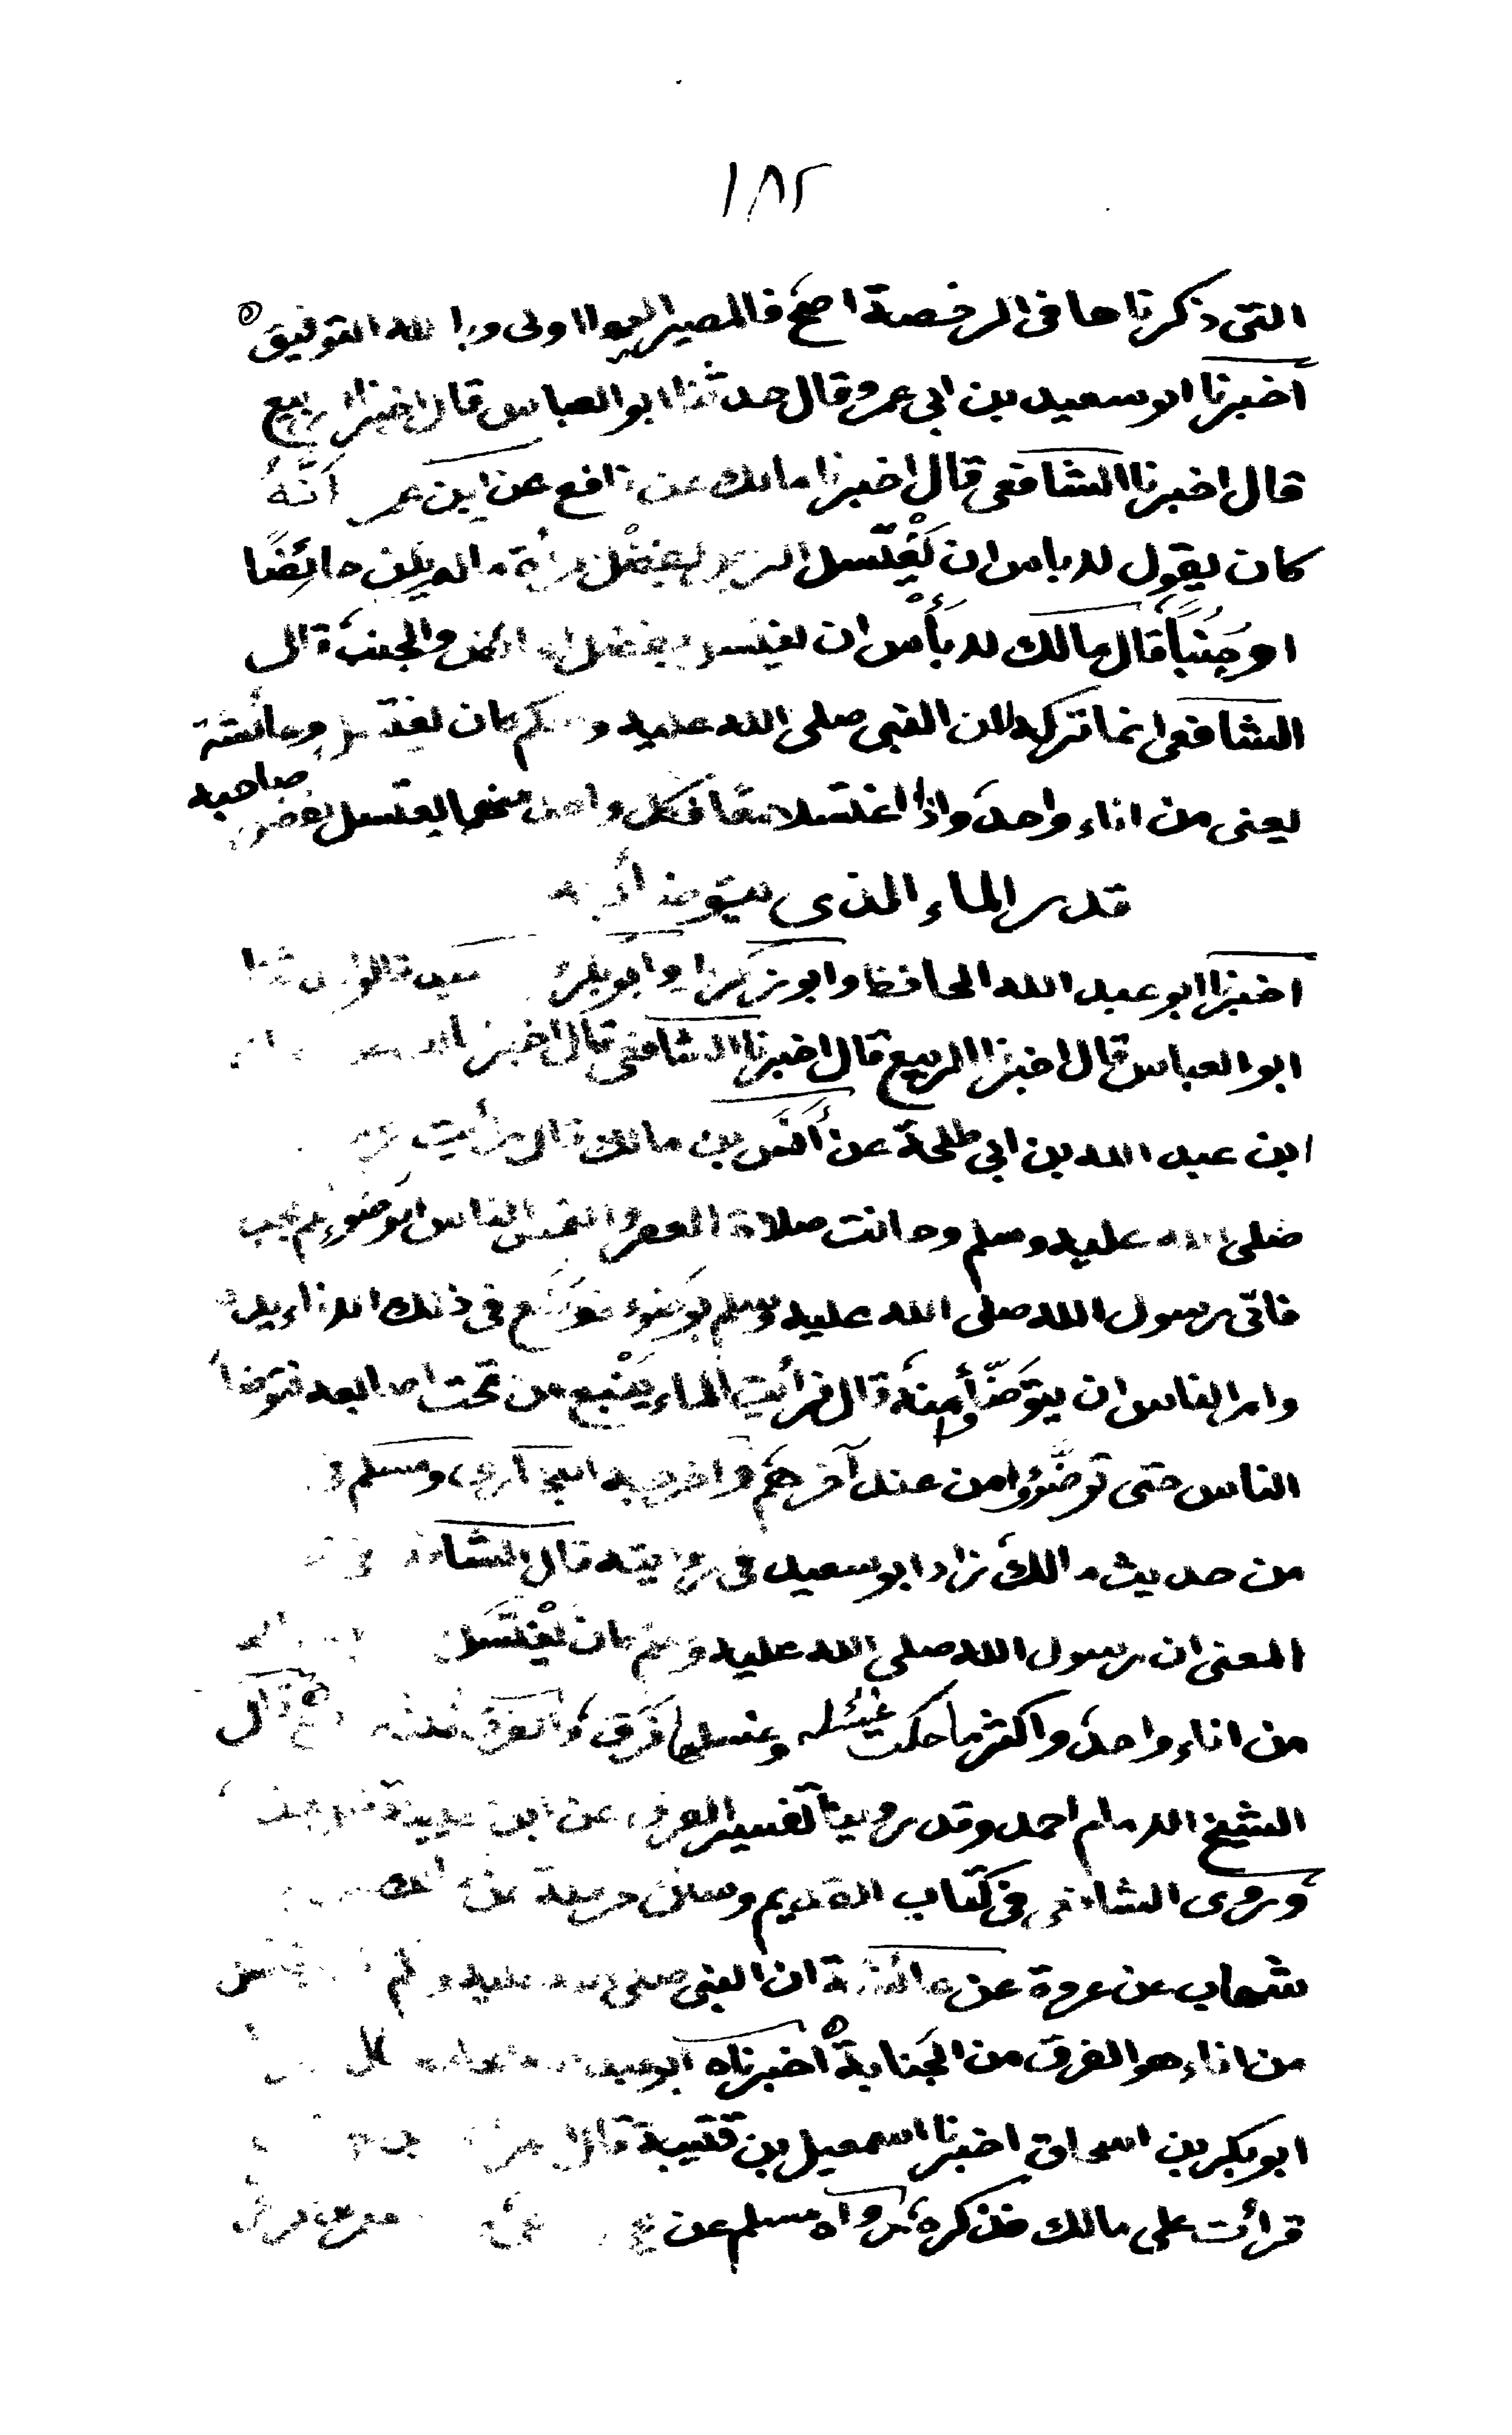 ١٨٢
التى ذكرناها فى الرخصة اصح فالمصير اليها اولى وبا لله التوفيق ه
أخبرنا ابو سعيد بن ابى عمرو قال حدثنا ابو العباس قال اخبرنا الربيع
قال اخبرنا الشافعى قال اخبرنا مالك عن نافع عن ابن عمر أنّهُ
كان يقول لا باس ان يَغْتَسل الرجل بفضْل المرأة ما لم يكن حائِضًا
او جُنُبًا قال مالك لا بَأْس ان يغتسل بفضل الحائض والجنب قال
الشافعى انما تركه لان النبى صلى الله عليه وسلم كان يغتسل وعائشة
يعنى من اناء واحد واذا اغتسلا معًا فكل واحد منهما يغتسل بفضل صاحبه
قدر الماء الذى يتوضأ به
اخبرنا ابو عبد الله الحافظ وابو زكريا وابو بكر سعيد قالوا حدثنا
ابو العباس قال اخبرنا الربيع قال اخبرنا الشافعى قال اخبرنا
ابن عبد الله بن ابى طلحة عن أَنَس بن مالك قال رأيت
صلى الله عليه وسلم وحانت صلاة العصر والتمس الناس الوضوء فلم يجب
فاتى رسول الله صلى الله عليه وسلم بوَضوء فوَضَع فى ذلك الاناء يده
وامر الناس ان يتوَضّأوا منهُ قال فرأيت الماء يَنْبع من تحت اصابعه فتوضأ
الناس حتى توضّؤوا من عند آخرهم واخرجه البخارى ومسلم فى
من حديث مالك زاد ابو سعيد فى روايته قال الشافعى
المعنى ان رسول الله صلى الله عليه وسلم كان يَغْتَسل
من اناء واحد واكثر ما حكت غُسْله وغسلها فَرَق والفرق ثلاثة اصع قال
الشيخ الامام احمد وقد روينا تفسير الفرق عن ابن عيينة
وروى الشافعى فى كتاب القديم وسنن حرملة عن
شهاب عن عروة عن عائشة ان النبى صلى الله عليه وسلم كان يغتسل
من اناء هو الفرق من الجَنابة ه أخبرناه ابو عبد الله الحافظ قال
ابو بكر بن اسحاق اخبرنا اسمعيل بن قتيبة قال
قرأت على مالك فذكره رواه مسلم عن